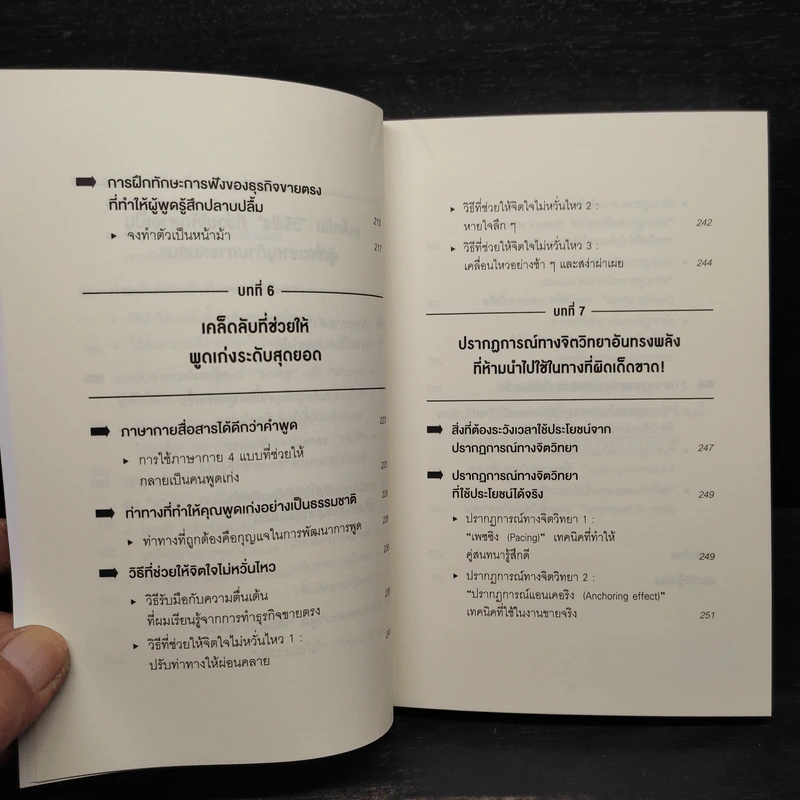 การฝึกทักษะการฟังของธุรกิจขายตรง
ที่ทำให้ผู้พูดรู้สึกปลาบปลื้ม 215
จงทำตัวเป็นหน้าม้า 217
บทที่ 6
เคล็ดลับที่ช่วยให้
พูดเก่งระดับสุดยอด
ภาษากายสื่อสารได้ดีกว่าคำพูด 223
การใช้ภาษากาย 4 แบบที่ช่วยให้
กลายเป็นคนพูดเก่ง 223
ท่าทางที่ทำให้คุณพูดเก่งอย่างเป็นธรรมชาติ
ท่าทางที่ถูกต้องคือกุญแจในการพัฒนาการพูด
วิธีที่ช่วยให้จิตใจไม่หวั่นไหว
วิธีรับมือกับความตื่นเต้น
ที่ผมเรียนรู้จากการทำธุรกิจขายตรง
วิธีที่ช่วยให้จิตใจไม่หวั่นไหว 1 :
ปรับท่าทางให้ผ่อนคลาย
วิธีที่ช่วยให้จิตใจไม่หวั่นไหว 2 :
หายใจลึก ๆ 242
วิธีที่ช่วยให้จิตใจไม่หวั่นไหว 3 :
เคลื่อนไหวอย่างช้า ๆ และสง่าผ่าเผย 244
บทที่ 7
ปรากฏการณ์ทางจิตวิทยาอันทรงพลัง
ที่ห้ามนำไปใช้ในทางที่ผิดเด็ดขาด!
สิ่งที่ต้องระวังเวลาใช้ประโยชน์จาก
ปรากฏการณ์ทางจิตวิทยา 247
ปรากฏการณ์ทางจิตวิทยา
ที่ใช้ประโยชน์ได้จริง 249
ปรากฏการณ์ทางจิตวิทยา 1 :
"เพซซิง (Pacing)" เทคนิคที่ทำให้
คู่สนทนารู้สึกดี 249
ปรากฏการณ์ทางจิตวิทยา 2 :
"ปรากฏการณ์แอนเคอริง (Anchoring effect)"
เทคนิคที่ใช้ในงานขายจริง 251